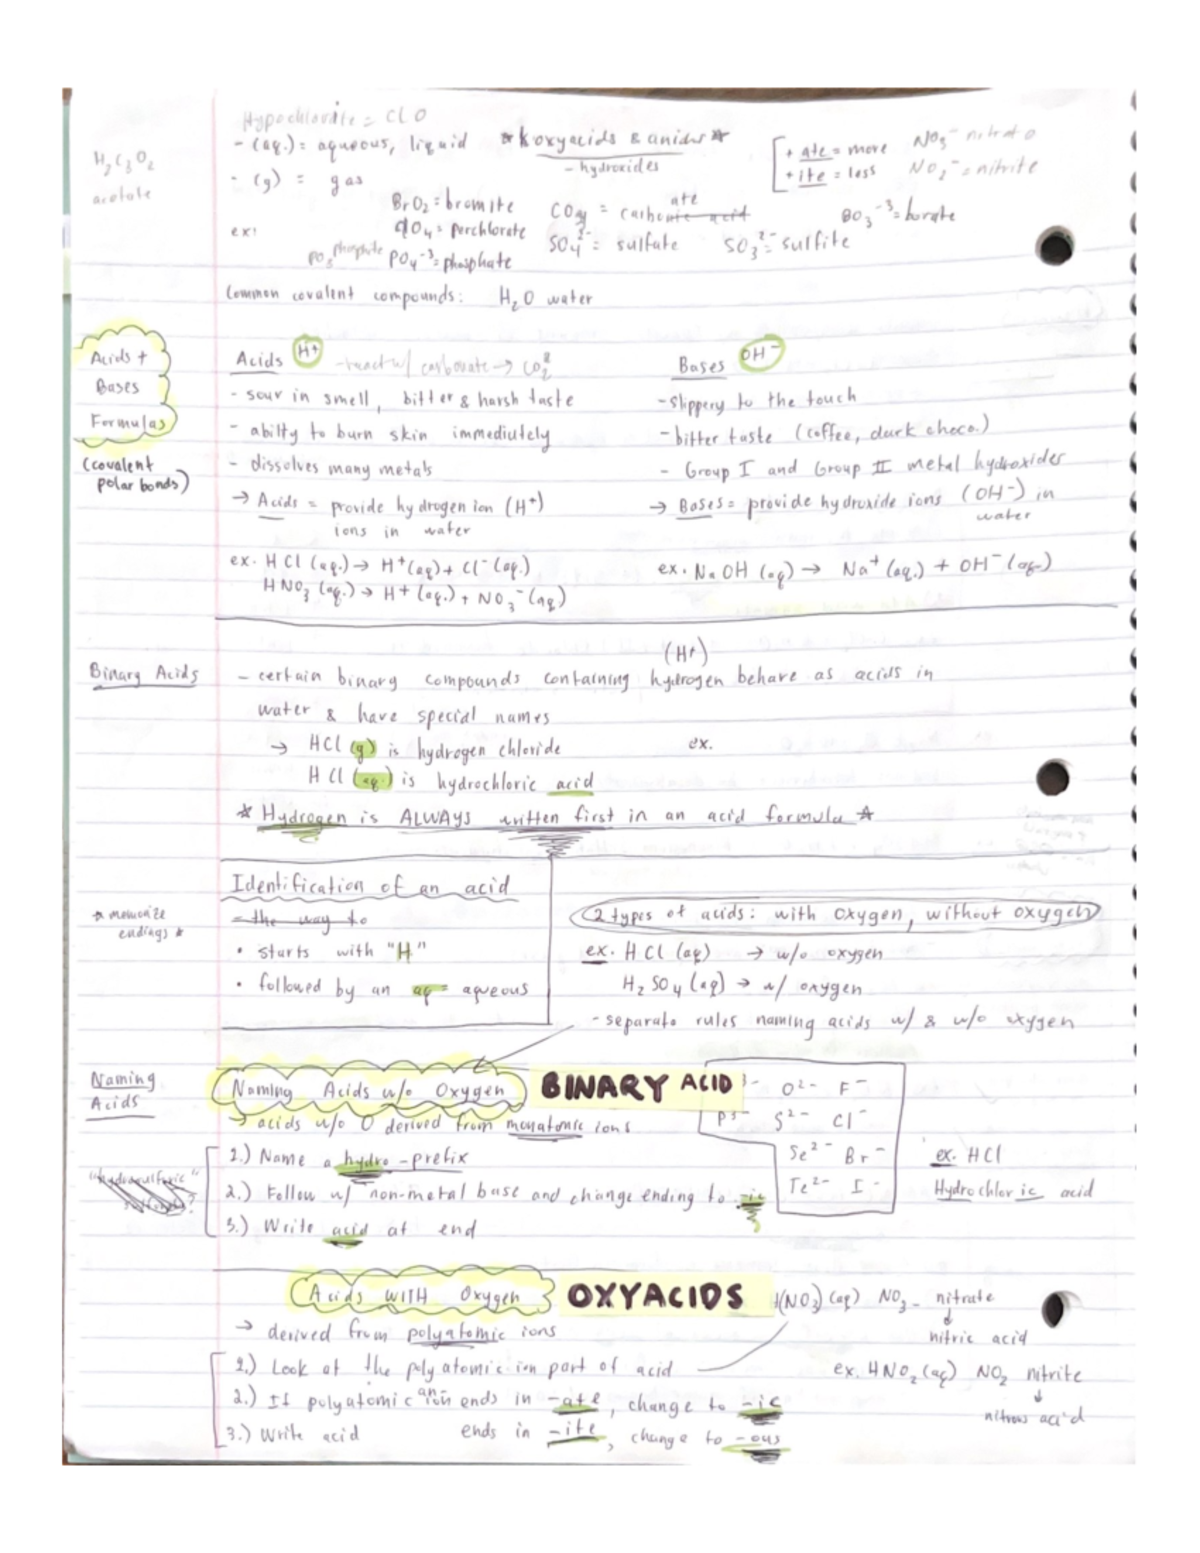 Hypochlorite = ClO
- (aq.) = aqueous, liquid
* oxyacids & anions *
- hydroxides
+ ate = more NO3⁻ nitrate
+ ite = less NO2⁻ = nitrite
H2C3O2
acetate
- (g) = gas
BrO2 = bromite
CO3 = carbonic acid ate
BO3⁻³ = borate
ex:
ClO4 = perchlorate
SO4²⁻ = sulfate
SO3²⁻ = sulfite
PO3 phosphite PO4⁻³ = phosphate
Common covalent compounds: H2O water
Acids +
Bases
Formulas
(covalent
polar bonds)
Acids H+ - react w/ carbonate → CO2
- sour in smell, bitter & harsh taste
- abilty to burn skin immediutely
- dissolves many metals
→ Acids = provide hydrogen ion (H⁺)
ions in water
ex. HCl (aq.) → H⁺(aq) + Cl⁻(aq.)
HNO3 (aq.) → H⁺(aq.) + NO3⁻(aq)
Bases OH⁻
- slippery to the touch
- bitter taste (coffee, dark choco.)
- Group I and Group II metal hydroxides
→ Bases = provide hydroxide ions (OH⁻) in
water
ex. NaOH (aq) → Na⁺ (aq.) + OH⁻ (aq)
Binary Acids
(H+)
- certain binary compounds containing hydrogen behave as acids in
water & have special names
→ HCl (g) is hydrogen chloride ex.
HCl (aq.) is hydrochloric acid
* Hydrogen is ALWAYS written first in an acid formula *
* memorize
endings *
Identification of an acid
= the way to
• starts with "H"
• followed by an aq = aqueous
2 types of acids: with oxygen, without oxygen
ex. HCl (aq) → w/o oxygen
H2SO4 (aq) → w/ oxygen
- separate rules naming acids w/ & w/o oxygen
Naming
Acids
Naming Acids w/o Oxygen BINARY ACID
→ acids w/o O derived from monatomic ions
1.) Name a hydro - prefix
2.) Follow w/ non-metal base and change ending to -ic
3.) Write acid at end
"hydrosulfuric"
3- O²⁻ F⁻
P³⁻ S²⁻ Cl⁻
Se²⁻ Br⁻
Te²⁻ I⁻
ex. HCl
Hydrochloric acid
Acids WITH Oxygen OXYACIDS
H(NO3)(aq) NO3- nitrate
nitric acid
→ derived from polyatomic ions
1.) Look at the polyatomic ion part of acid
2.) If polyatomic anion ends in -ate, change to -ic
3.) Write acid ends in -ite, change to -ous
ex. HNO2 (aq) NO2 nitrite
nitrous acid